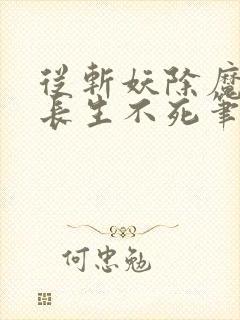 從斬妖除魔
長生不死筆
何忠勉